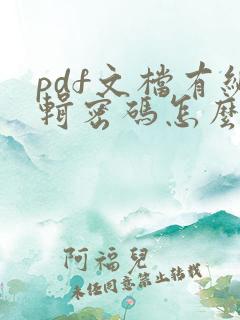 pdf文檔有編
輯密碼怎麼
阿福兒
未經同意禁止轉載